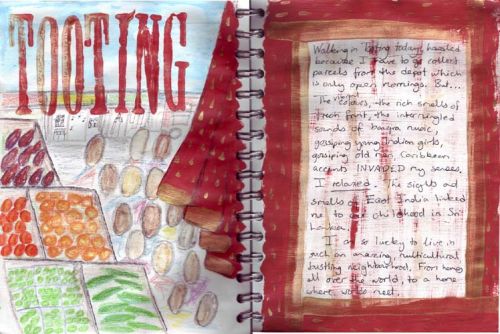 TOOTING
Walking in Tooting today, hassled
because I have to go collect
parcels from the depot which
is only open mornings. But...
The vibrant colours, the rich smells of
fresh fruit, the intermingled
sounds of bangra music,
gossiping young Indian girls,
gossiping old men, Caribbean
accents INVADED my senses.
I relaxed. The sights and
smells of East India linked
me to my childhood in Sri
Lanka.
I am so lucky to live in
such an amazing, multicultural
bustling neighbourhood. From homes
all over the world, to a home
where worlds meet.